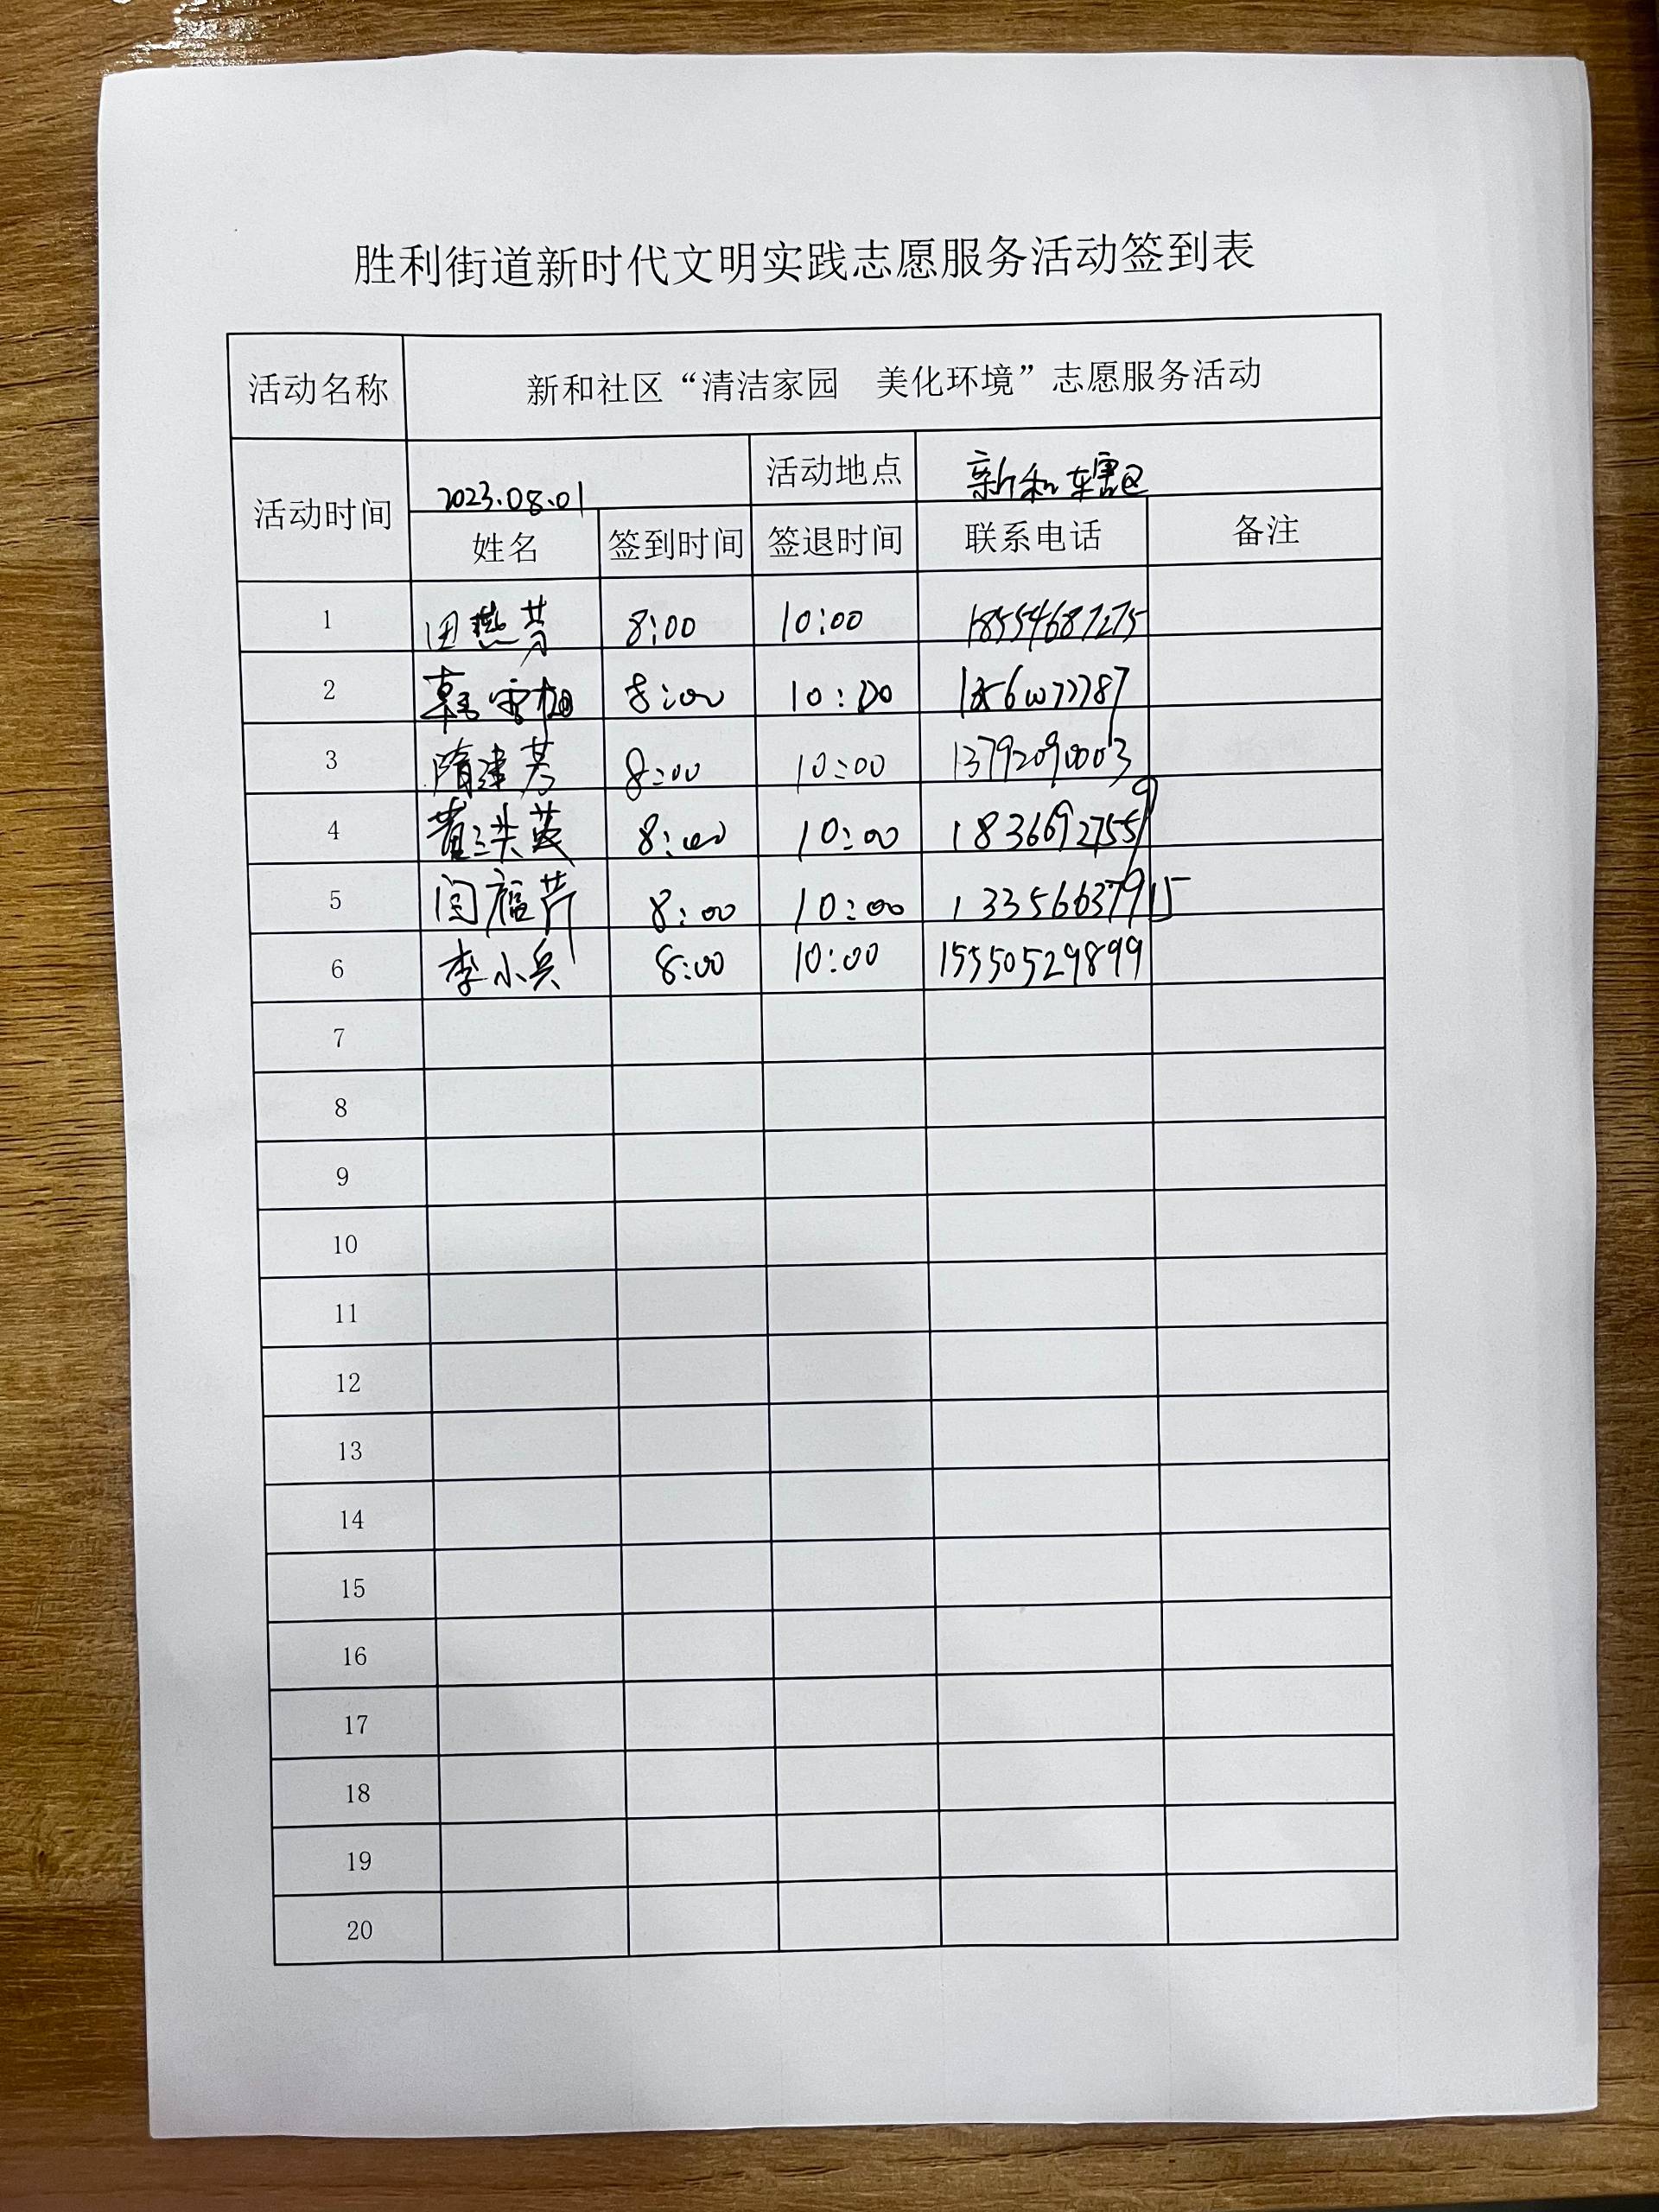 胜利街道新时代文明实践志愿服务活动签到表
活动名称 新和社区“清洁家园 美化环境”志愿服务活动
活动时间 2023.08.01 活动地点 新和辖区
姓名 签到时间 签退时间 联系电话 备注
1 田燕芳 8:00 10:00 18554687275
2 韩雪梅 8:00 10:00
3 隋津芳 8:00 10:00 13792090003
4 8:00 10:00 18366927559
5 闫福芹 8:00 10:00 13356637915
6 李小兵 8:00 10:00 15550529899
7
8
9
10
11
12
13
14
15
16
17
18
19
20